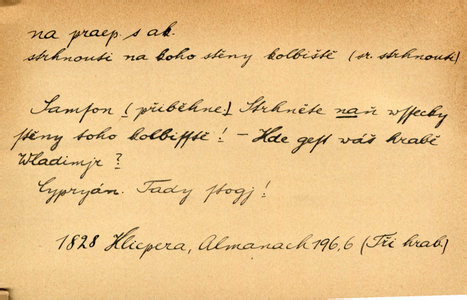 na praep. s ak.
strhnouti na koho stěny kolbiště (sr. strhnouti)
Samson (přiběhne.) Strhněte naň wssecky
stěny toho kolbisstě! – Kde gest wáš hrabě
Wladimjr?
Cypryán. Tady stogj!
1828 Klicpera, Almanach 196,6 (Tři hrab)